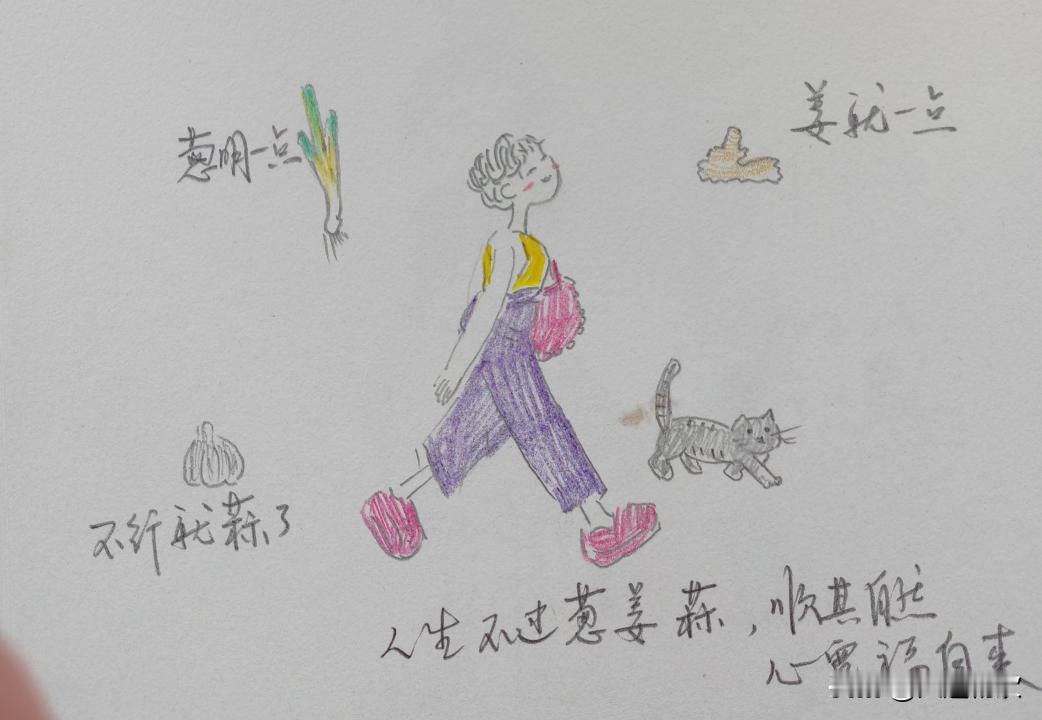 葱明一点
姜就一点
不纤就蒜了
人生不过葱姜蒜,顺其自然
心宽福自来